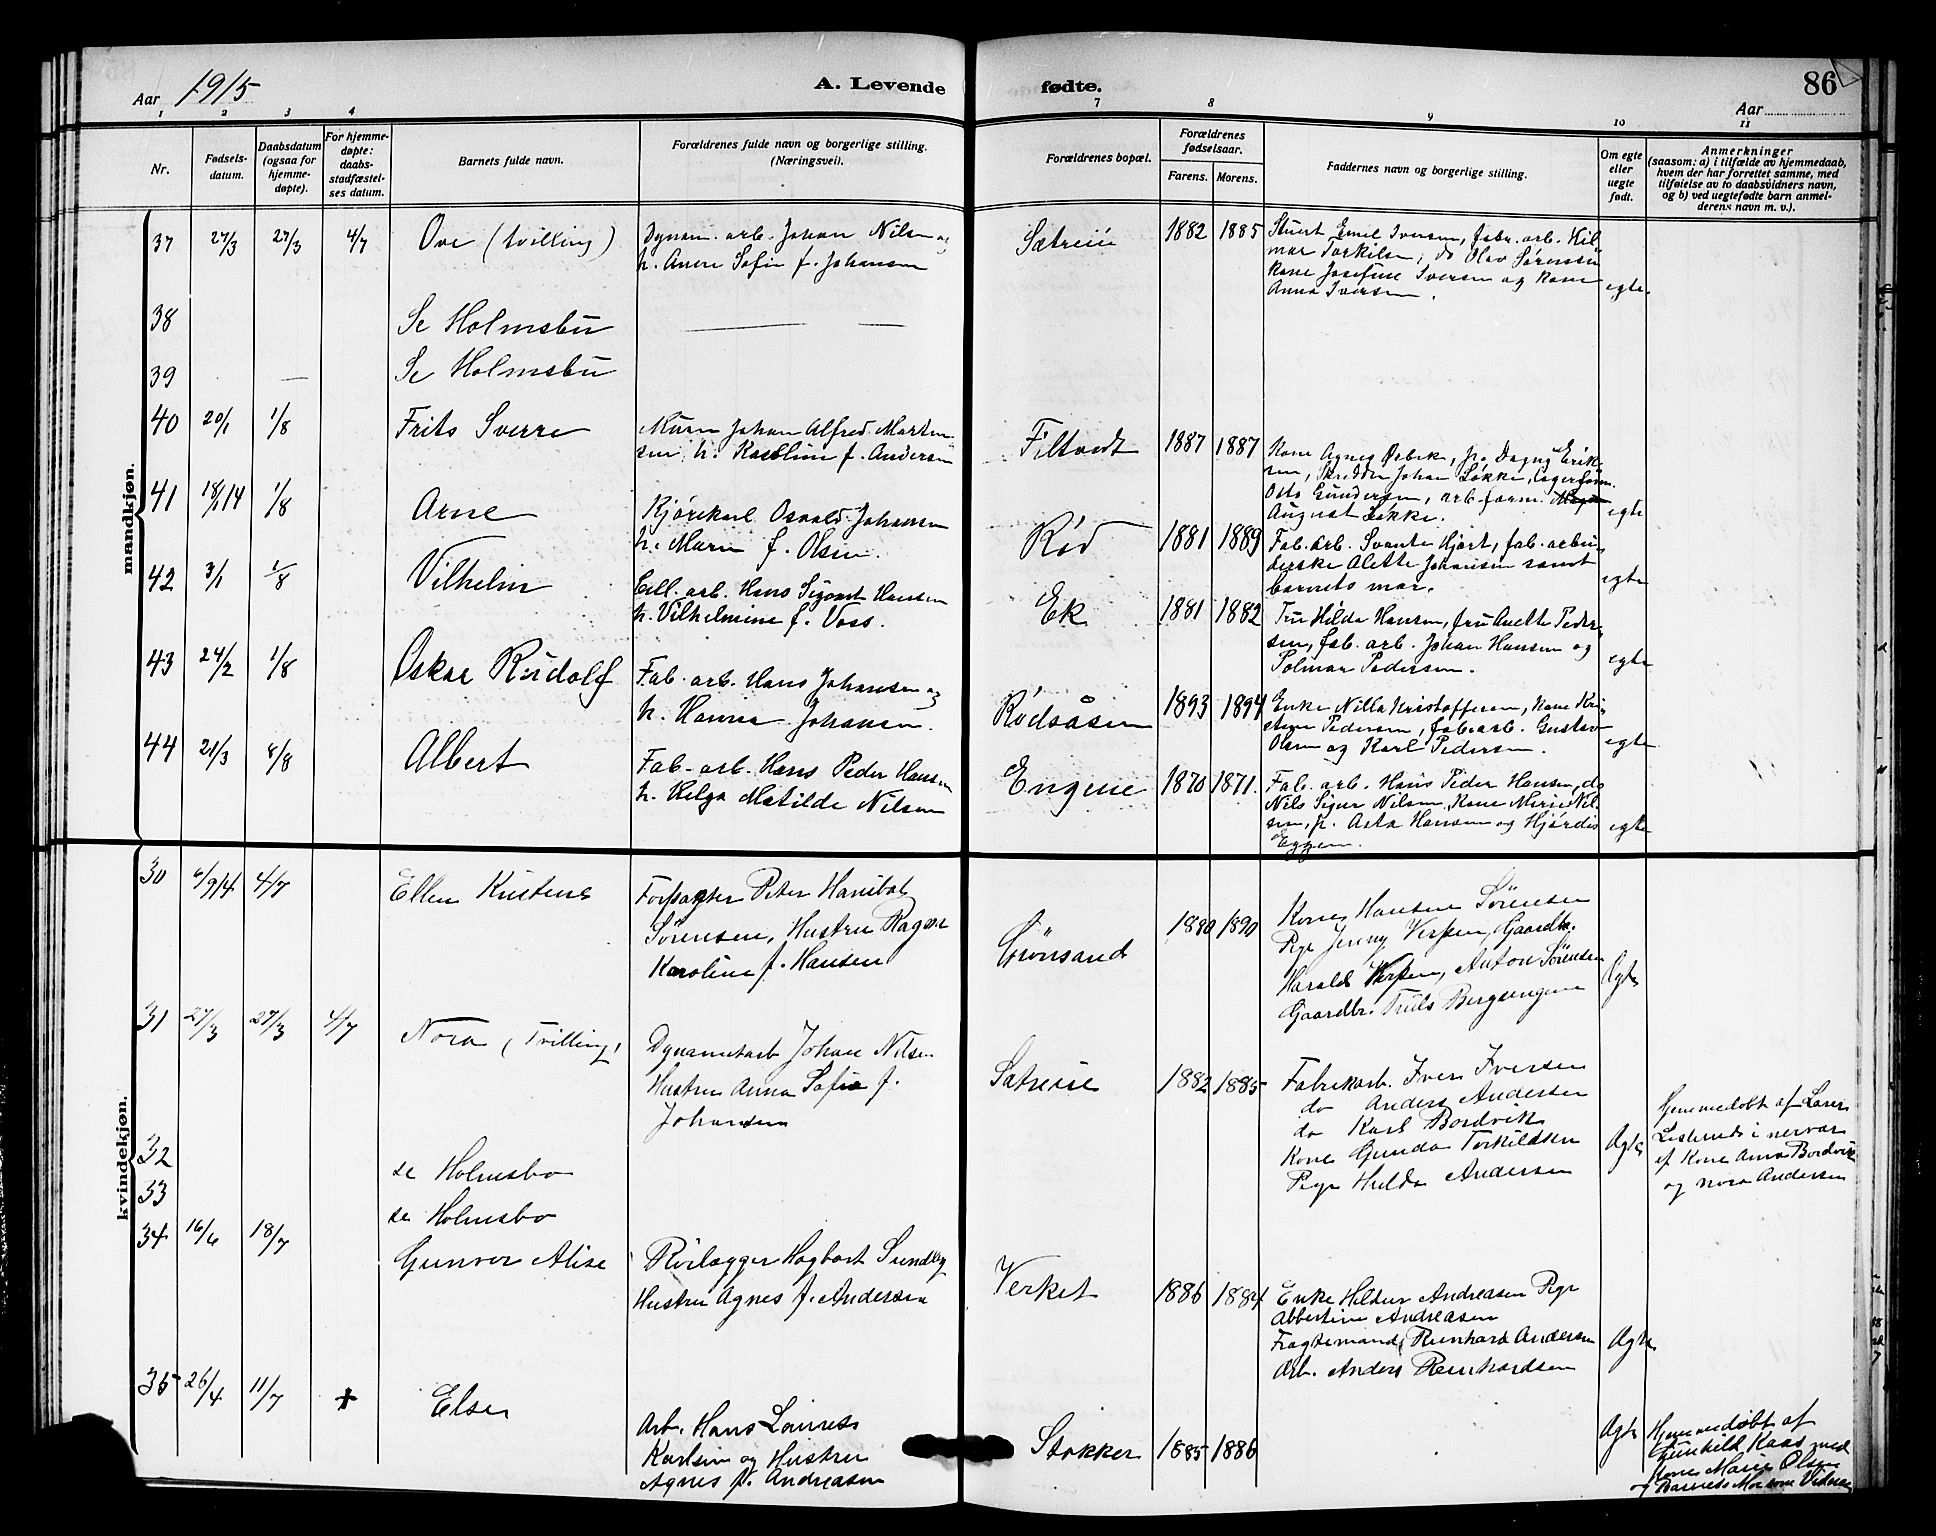 Aar 1915
A. Levende
fødte.
86
Aar
1 2 3 4
7 8 9 10 11
Nr.
Fødsels-
datum.
Daabsdatum
(ogsaa for
hjemme-
døpte).
For hjemme-
døpte:
daabs-
stadfæstel-
ses datum.
Barnets fulde navn.
Forældrenes fulde navn og borgerlige stilling.
(Næringsvei).
Forældrenes bopæl.
Forældrenes
fødselsaar.
Farens. Morens.
Faddernes navn og borgerlige stilling.
Om egte
eller
uegte
født.
Anmerkninger
(saasom: a) i tilfælde av hjemmedaab,
hvem der har forrettet samme, med
tilføielse av to daabsvidners navn,
og b) ved uegtefødte barn anmel-
derens navn m. v.).
mandkjøn.
37 27/3 27/3 4/7 Ove (tvilling)
Dynam. arb. Johan Nilsen og
h. Anne Sofie f. Johansen
Sætreie 1882 1885
Stuert Emil Iversen, fabr. arb. Hil-
mar Torkilsen, do Olav Sørensen
kone Josefine Iversen og kone
Anna Iversen.
egte.
38 Se Holmsbu
39 Se Holmsbu
40 20/1 1/8 Frits Sverre
Murer Johan Alfred Marten-
sen h. Karoline f. Andersen
Filtvedt 1887 1887
Kone Agnes Ørbek, p. Dagny Erik-
sen, Skrædder Johan Løkke, Lagerform.
Otto Gundersen, arb. form.
August Løkke.
egte
41 18/1 14 1/8 Arne
Kjørekarl Osvald Johansen
h. Marie f. Olsen.
Rød 1881 1889
Fab. arb. Svante Hjort, fab. arbei-
derske Alette Johansen samt
barnets mor.
egte
42 3/1 1/8 Vilhelm
Cell. arb. Hans Sigvart Hansen
h. Vilhelmine f. Voss.
Ek 1881 1882
Fru Hilda Hansen, fru Anette Peder-
sen, fab. arb. Johan Hansen og
Solmar Pedersen.
egte
43 24/2 1/8 Oskar Rudolf
Fab. arb. Hans Johansen og
h. Hanna Johansen.
Rødsåsen 1893 1894
Enke Nilla Kristoffersen, Kone Kri-
stine Pedersen, fab. arb. Gustav
Olsen og Karl Pedersen.
egte
44 21/3 8/8 Albert
Fab. arb. Hans Peder Hansen
h. Helga Matilde Nilsen
Engene 1870 1871.
Fab. arb. Hans Peder Hansen, do
Nils Sigur Nilsen, Kone Marie Nil-
sen, p. Asta Hansen og Hjørdis
Eggen.
egte
kvindekjøn.
30 6/9 14 4/7 Ellen Kristene
Forpagter Peter Hanibal
Sørensen, Hustru Ragna
Karoline f. Hansen
Grønsand 1880 1890
Kone Hansine Sørensen
Pige Jenny Verpen, Gaardbr.
Harald Verpen, Anton Sørensen
Gaardbr. Truls Bergsengene
Ægte
31 27/3 27/3 4/7 Nora (Tvilling)
Dynamitarb Johan Nilsen
Hustru Anna Sofia f.
Johansen
Sætreie 1882 1885
Fabrikarb. Iver Iversen
do Anders Andersen
do Karl Bordvik
Kone Gunda Torkildsen
Pige Hulda Andersen
Ægte
Hjemmedøbt af
i nærvær
af Kone Anna Bordvik
og Nora Andersen
32 se Holmsbo
33 se Holmsbo
34 16/6 18/7 Gunvor Alise
Rørlægger Hagbart Sundby
Hustru Agnes f. Andersen
Verket 1886 1884
Enke Hildur Andreasen Pige
Abbertine Andreasen
Fragtemand Reinhard Andersen
Arb. Anders Reinhardsen
Ægte
35 26/4 11/7 + Else
Arb. Hans Laurets
Karlsen og Hustru
Agnes f. Andreasen
Stokker 1885 1886
Ægte
Hjemmedøbt af
Gunhild Kaas med
Kone Marie Olsen
og Barnets Mor som Vidner